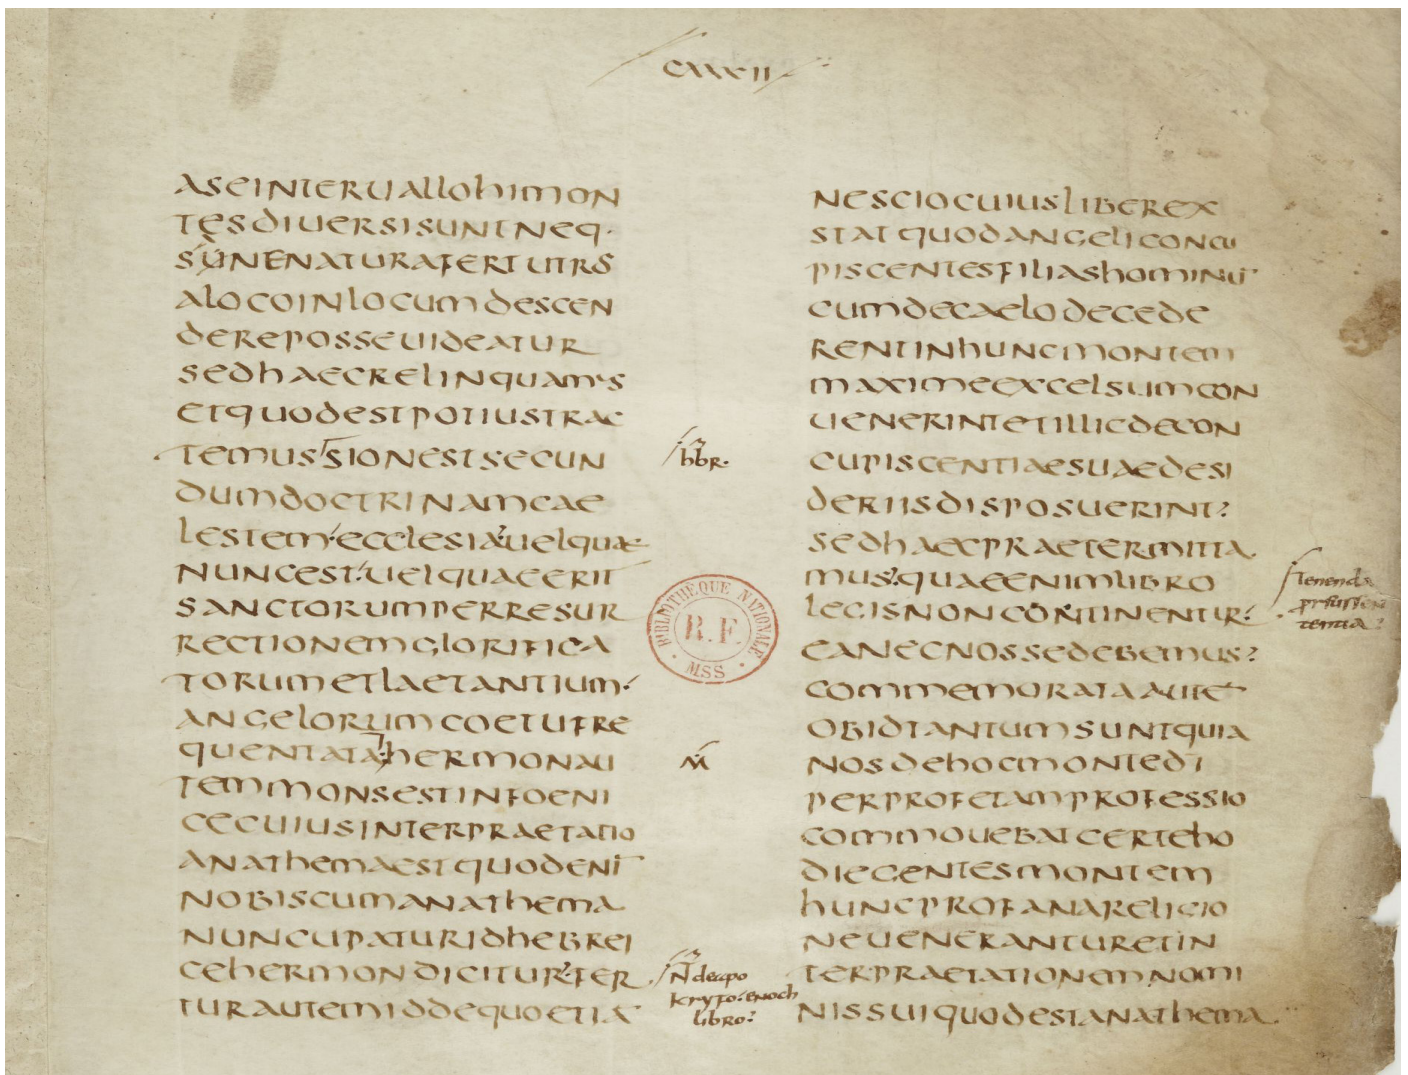 CXXXII
ASEINTERUALLOHIMON
TESDIUERSISUNTNEQ·
SUNENATURAFERTUTRŌS
ALOCOINLOCUMDESCEN
DEREPOSSEUIDEATUR
SEDHAECRELINQUAMUS
ETQUODESTPOTIUSTRAC
TEMUSSIONESTSECUN
DUMDOCTRINAMCAE
LESTEMECCLESIAUELQUAE
NUNCESTUELQUAEERIT
SANCTORUMPERRESUR
RECTIONEMGLORIFICA
TORUMETLAETANTIUM
ANGELORUMCOETUFRE
QUENTATAHERMONAU
TEMMONSESTINFOENI
CECUIUSINTERPRAETATIO
ANATHEMAESTQUODENĪ
NOBISCUMANATHEMA
NUNCUPATURIDHEBREI
CEHERMONDICITUR·FER
TURAUTEMIDDEQUOETIĀ
hbr·
BIBLIOTHÈQUE NATIONALE
R.F.
MSS
N̄ deapo
kryfo·enoch
libro?
NESCIOCUIUSLIBEREX
STATQUODANGELICONCU
PISCENTESFILIASHOMINŪ
CUMDECAELODECEDE
RENTINHUNCMONTEM
MAXIMEEXCELSUMCON
UENERINTETILLICDECON
CUPISCENTIAESUAEDESI
DERIISDISPOSUERINT?
SEDHAECPRAETERMITTA
MUS?QUAEENIMLIBRO
LEGISNONCONTINENTUR?
EANECNOSSEDEBEMUS?
COMMEMORATAAUTĒ
OBIDTANTUMSUNTQUIA
NOSDEHOCMONTEDI
PERPROFETAMPROFESSIO
COMMOUEBATCERTEHO
DIEGENTESMONTEM
HUNCPROFANARELIGIO
NEUENERANTURETIN
TERPRAETATIONEMNOMI
NISSUIQUODESTANATHEMA
tenenda